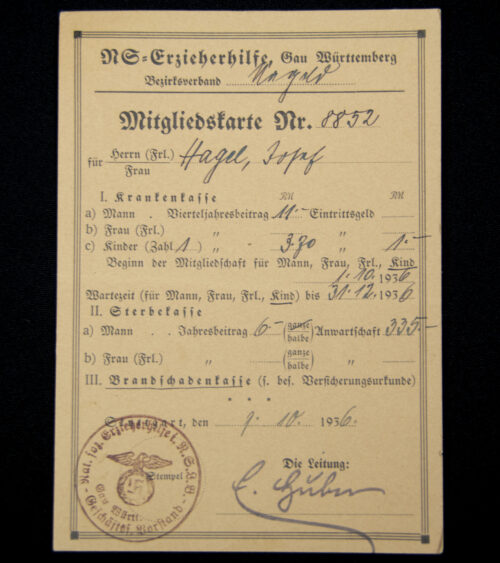 NS-Erzieherhilfe, Gau Württemberg
Bezirksverband Nagold
Mitgliedskarte Nr. 8852
für Herrn (Frl.) Hagel, Josef
Frau
I. Krankenkasse RM RM
a) Mann . Vierteljahresbeitrag 11.- Eintrittsgeld
b) Frau (Frl.) " "
c) Kinder (Zahl 1) " 3.30 " 1.-
Beginn der Mitgliedschaft für Mann, Frau, Frl., Kind
1.10.1936
Wartezeit (für Mann, Frau, Frl., Kind) bis 31.12.1936
II. Sterbekasse
a) Mann . Jahresbeitrag 6.- (ganze halbe) Anwartschaft 335.-
b) Frau (Frl.) " (ganze halbe) "
III. Brandschadenkasse (s. bes. Versicherungsurkunde)
Stuttgart, den 9. 10. 1936.
Die Leitung:
Stempel
E. Huber
Nat. soz. Erzieherhilfe d. N.S.L.B.
Gau Württ.
Geschäftsf. Vorstand